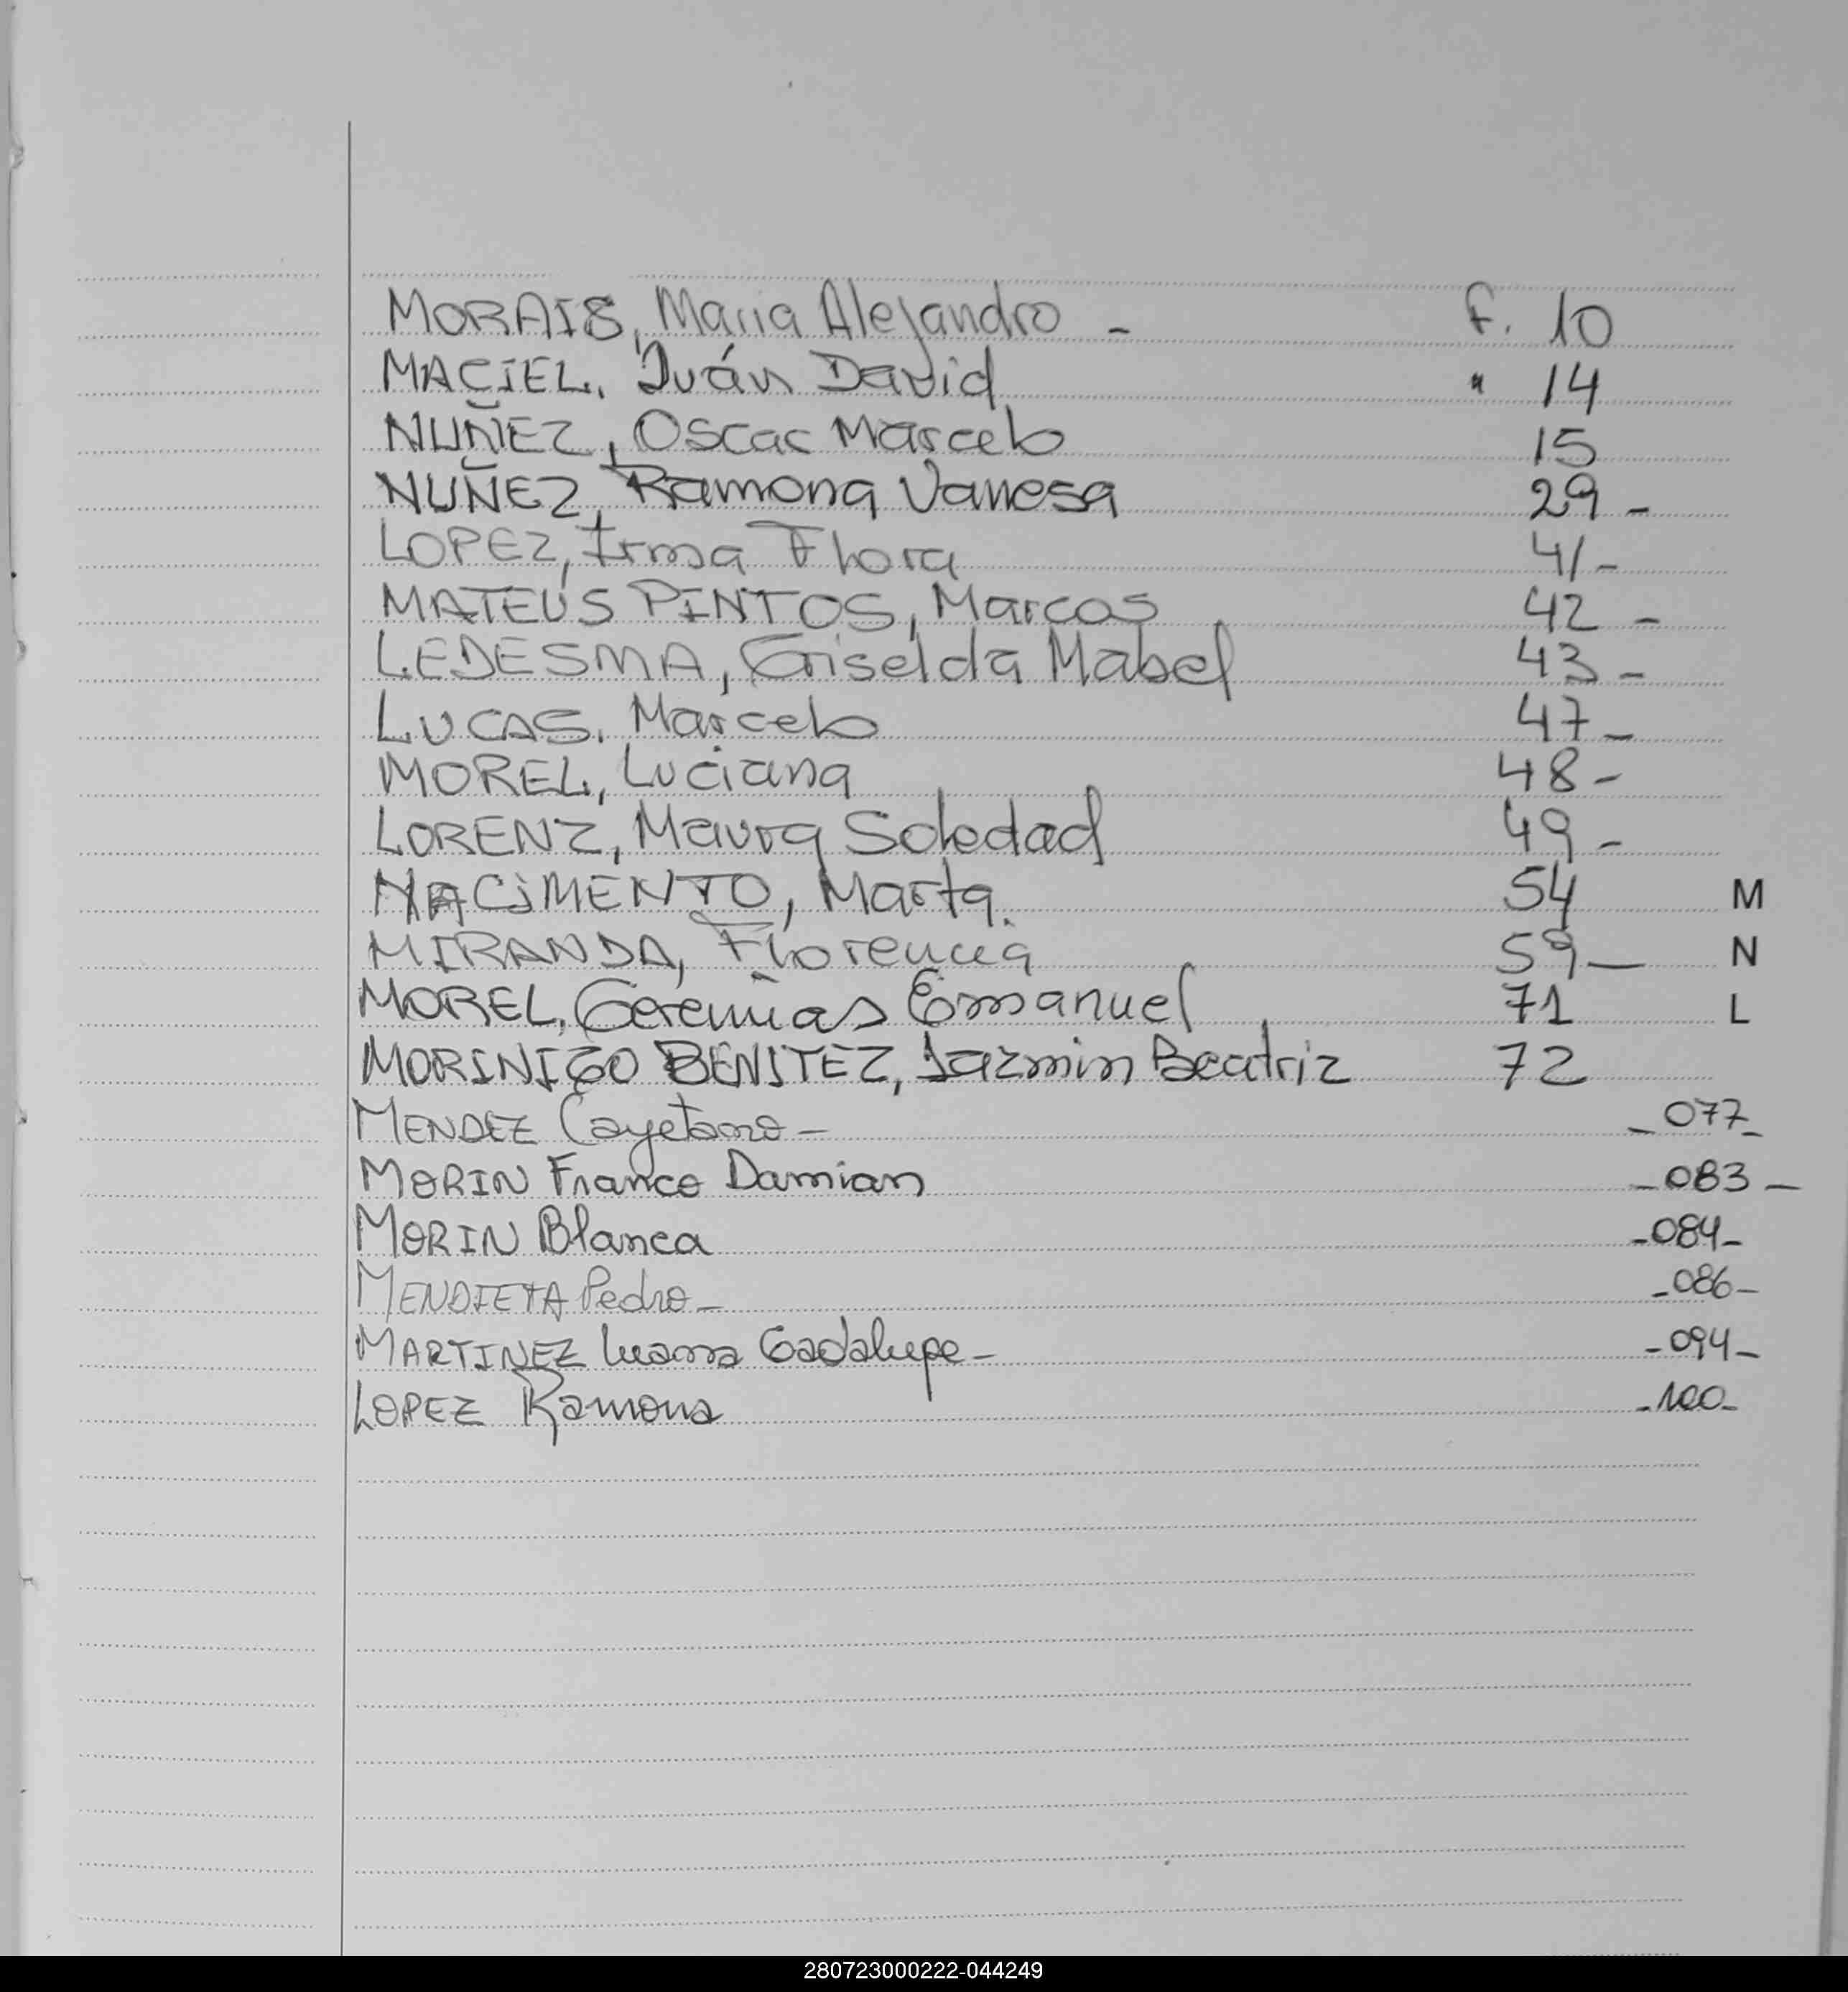 MORAIS, Maria Alejandro - F. 10
MACIEL, Iván David " 14
NUÑEZ, Oscar Marcelo 15
NUÑEZ, Ramona Vanesa 29 -
LOPEZ, Irma Flora 41 -
MATEUS PINTOS, Marcos 42 -
LEDESMA, Griselda Mabel 43 -
LUCAS, Marcelo 47 -
MOREL, Luciana 48 -
LORENZ, Maura Soledad 49 -
NACIMENTO, Marta. 54 M
MIRANDA, Florencia 59 - N
MOREL, Geremias Emanuel 71 L
MORINIGO BENITEZ, Jazmin Beatriz 72
MENDEZ Cayetano - - 077 -
MORIN Franco Damian - 083 -
MORIN Blanca - 084 -
MENDIETA Pedro - - 086 -
MARTINEZ Luana Gadalupe - - 094 -
LOPEZ Ramona - 100 -
280723000222-044249